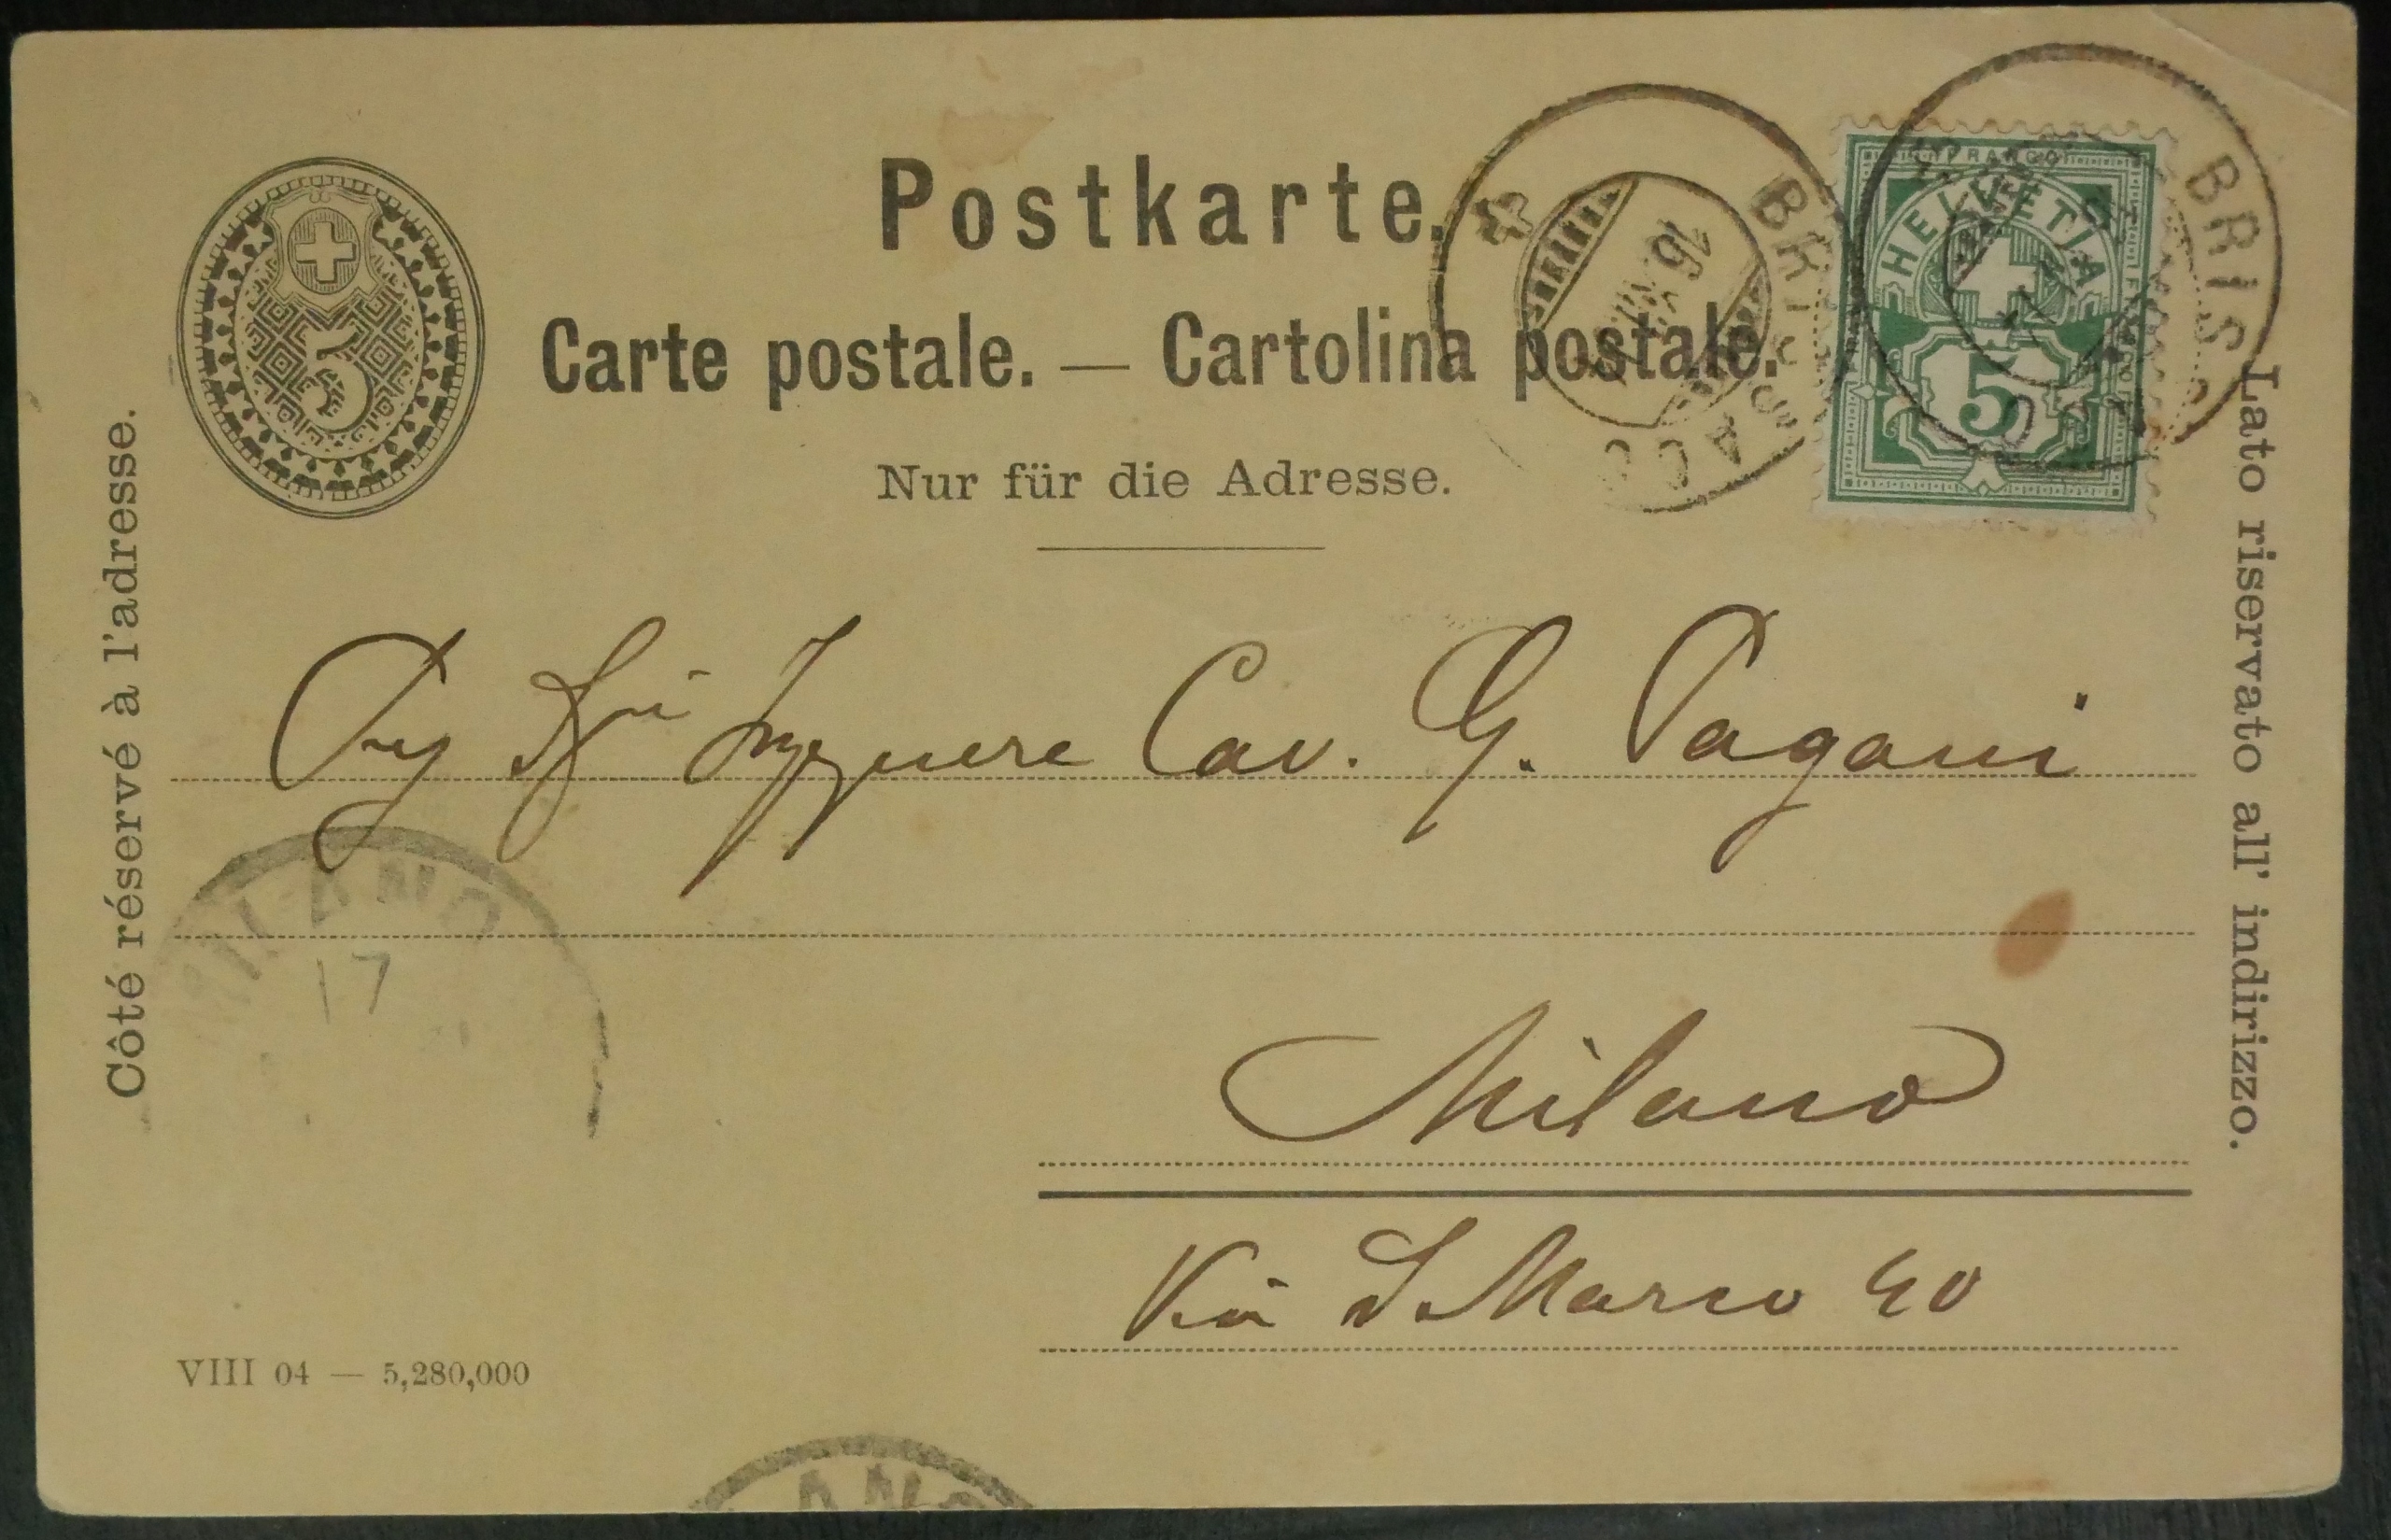 Postkarte.
Carte postale. — Cartolina postale.
Nur für die Adresse.
5
FRANCO
HELVETIA
5
BRISSAGO
16
BRIS
Côté réservé à l'adresse.
Lato riservato all' indirizzo.
Cav. G. Pagani
MILANO
17
Milano
Via S. Marco 40
VIII 04 — 5,280,000